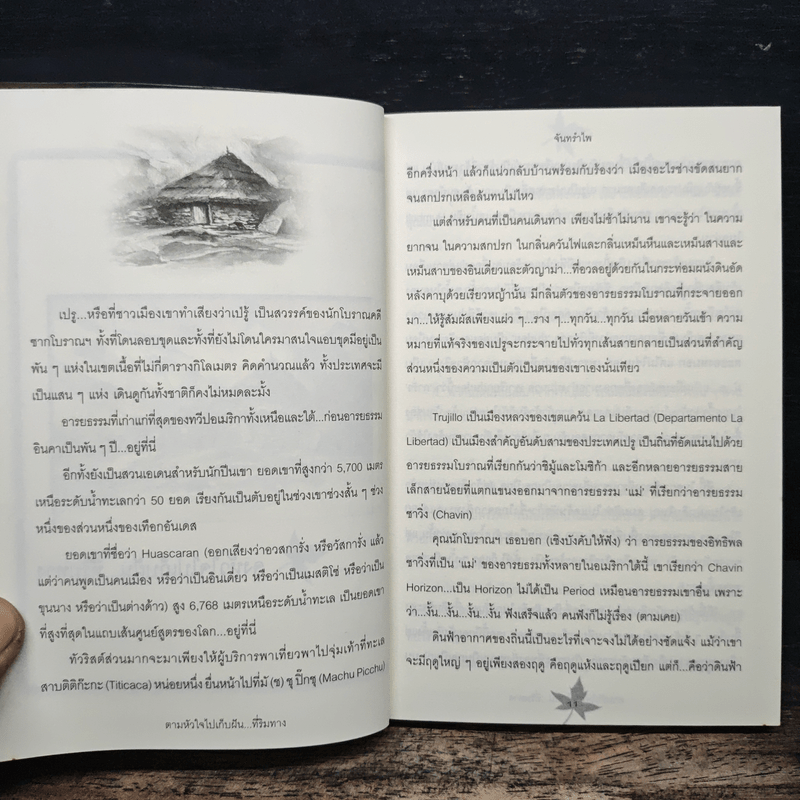 เปรู...หรือที่ชาวเมืองเขาทำเสียงว่าเปรู้ เป็นสวรรค์ของนักโบราณคดี
ซากโบราณฯ ทั้งที่โดนลอบขุดและทั้งที่ยังไม่โดนใครมาสนใจแอบขุดมีอยู่เป็น
พัน ๆ แห่งในเขตเนื้อที่ไม่กี่ตารางกิโลเมตร คิดคำนวณแล้ว ทั้งประเทศจะมี
เป็นแสน ๆ แห่ง เดินดูกันทั้งชาติก็คงไม่หมดละมั้ง
อารยธรรมที่เก่าแก่ที่สุดของทวีปอเมริกาทั้งเหนือและใต้...ก่อนอารยธรรม
อินคาเป็นพัน ๆ ปี...อยู่ที่นี่
อีกทั้งยังเป็นสวนเอเดนสำหรับนักปีนเขา ยอดเขาที่สูงกว่า 5,700 เมตร
เหนือระดับน้ำทะเลกว่า 50 ยอด เรียงกันเป็นตับอยู่ในช่วงเขาช่วงสั้น ๆ ช่วง
หนึ่งของส่วนหนึ่งของเทือกอันเดส
ยอดเขาที่ชื่อว่า Huascaran (ออกเสียงว่าอวสการั่ง หรือวัสการั่ง แล้ว
แต่ว่าคนพูดเป็นคนเมือง หรือว่าเป็นอินเดี่ยว หรือว่าเป็นเมสติโซ่ หรือว่าเป็น
ขุนนาง หรือว่าเป็นต่างด้าว) สูง 6,768 เมตรเหนือระดับน้ำทะเล เป็นยอดเขา
ที่สูงที่สุดในแถบเส้นศูนย์สูตรของโลก...อยู่ที่นี่
ทัวริสต์ส่วนมากจะมาเพียงให้ผู้บริการพาเที่ยวพาไปจุ่มเท้าที่ทะเล
สาบติติก๊ะกะ (Titicaca) หน่อยหนึ่ง ยื่นหน้าไปที่มั (ช) ชุ ปิ๊กชุ (Machu Picchu)
ตามหัวใจไปเก็บฝัน...ที่ริมทาง
จันทรำไพ
อีกครึ่งหน้า แล้วก็แน่วกลับบ้านพร้อมกับร้องว่า เมืองอะไรช่างขัดสนยาก
จนสกปรกเหลือล้นทนไม่ไหว
แต่สำหรับคนที่เป็นคนเดินทาง เพียงไม่ช้าไม่นาน เขาจะรู้ว่า ในความ
ยากจน ในความสกปรก ในกลิ่นควันไฟและกลิ่นเหม็นหืนและเหม็นสางและ
เหม็นสาบของอินเดี่ยวและตัวญาม่า...ที่อวลอยู่ด้วยกันในกระท่อมผนังดินอัด
หลังคาบุด้วยเรียวหญ้านั้น มีกลิ่นตัวของอารยธรรมโบราณที่กระจายออก
มา...ให้รู้สัมผัสเพียงแผ่ว ๆ...ราง ๆ...ทุกวัน...ทุกวัน เมื่อหลายวันเข้า ความ
หมายที่แท้จริงของเปรูจะกระจายไปทั่วทุกเส้นสายกลายเป็นส่วนที่สำคัญ
ส่วนหนึ่งของความเป็นตัวเป็นตนของเขาเองนั่นเทียว
Trujillo เป็นเมืองหลวงของเขตแคว้น La Libertad (Departamento La
Libertad) เป็นเมืองสำคัญอันดับสามของประเทศเปรู เป็นถิ่นที่อัดแน่นไปด้วย
อารยธรรมโบราณที่เรียกกันว่าชิมู้และโมชิก้า และอีกหลายอารยธรรมสาย
เล็กสายน้อยที่แตกแขนงออกมาจากอารยธรรม 'แม่' ที่เรียกว่าอารยธรรม
ชาวิ่ง (Chavin)
คุณนักโบราณฯ เธอบอก (เชิงบังคับให้ฟัง) ว่า อารยธรรมของอิทธิพล
ชาวิ่งที่เป็น 'แม่' ของอารยธรรมทั้งหลายในอเมริกาใต้นี้ เขาเรียกว่า Chavin
Horizon...เป็น Horizon ไม่ได้เป็น Period เหมือนอารยธรรมเขาอื่น เพราะ
ว่า...งั้น...งั้น...งั้น...งั้น ฟังเสร็จแล้ว คนฟังก็ไม่รู้เรื่อง (ตามเคย)
ดินฟ้าอากาศของถิ่นนี้เป็นอะไรที่เจาะจงไม่ได้อย่างชัดแจ้ง แม้ว่าเขา
จะมีฤดูใหญ่ ๆ อยู่เพียงสองฤดู คือฤดูแห้งและฤดูเปียก แต่ก็...คือว่าดินฟ้า
11